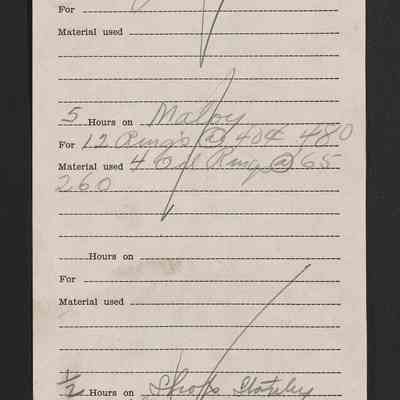 For
Material used
5 Hours on Malby
For 12 Ring's @ 40¢ 480
Material used 4 Oil Ring @ 65
260
Hours on
For
Material used
1/2 Hours on Shops